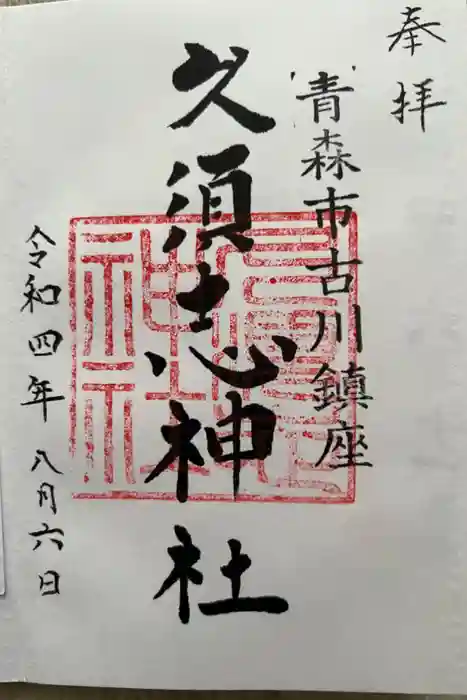 奉拝
青森市古川鎮座
久須志神社
令和四年八月六日